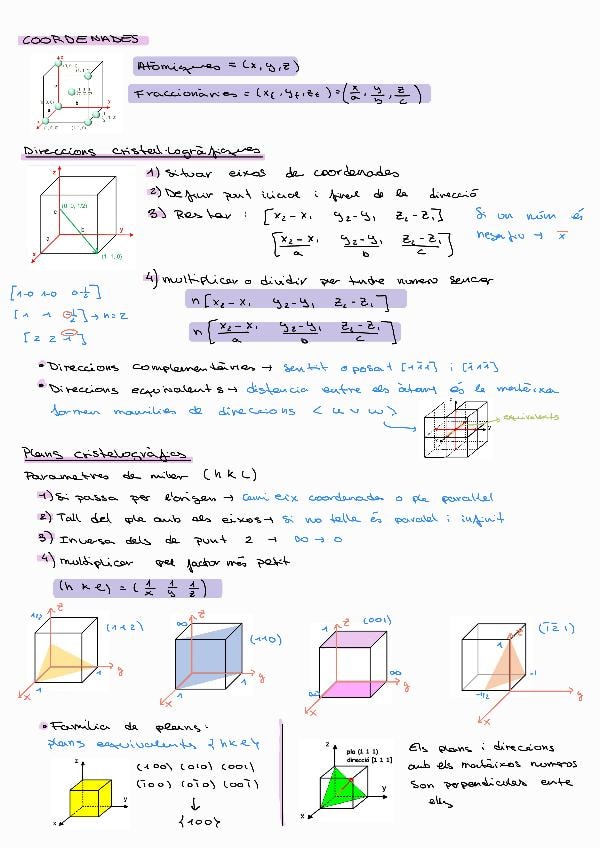 COORDENADES
Atòmiques = (x, y, z)
Fraccionàries = (xf, yf, zf) = (x/a, y/b, z/c)
Direccions cristal·logràfiques
1) Situar eixos de coordenades
2) Definir punt inicial i final de la direcció
3) Restar: [x₂-x₁ y₂-y₁ z₂-z₁]
[x₂-x₁/a y₂-y₁/b z₂-z₁/c]
Si un núm és
negatiu → x̅
(0, 0, 1/2)
(1, 1, 0)
4) multiplicar o dividir per tindre numero sencer
n[x₂-x₁ y₂-y₁ z₂-z₁]
n[x₂-x₁/a y₂-y₁/b z₂-z₁/c]
[1-0 1-0 0-½]
[1 1 -½] → n=2
[2 2 1̅]
• Direccions complementàries → sentit oposat
• Direccions equivalents → distancia entre els àtoms és la mateixa
formen families de direccions <u v w>
equivalents
Plans cristalogràfics
Parametres de miler (h k l)
1) Si passa per l'origen → canvi eix coordenades o pla parallel
2) Tall del pla amb els eixos → si no talla és paralel i infinit
3) Inversa dels de punt 2 → ∞ → 0
4) multiplicar pel factor més petit
(h k l) = (1/x 1/y 1/z)
1/2 z (112) 1 1 x y
∞ z (110) 1 1 x y
z (001) 1 ∞ ∞ x y
z (1̅2̅1) 1 -1/2 -1 x y
• Família de plans:
plans equivalents {hkl}
(100) (010) (001)
(1̅00) (01̅0) (001̅)
↓
{100}
z
y
x
z
pla (1 1 1)
direcció [1 1 1]
y
x
Els plans i direccions
amb els mateixos numeros
són perpendiculars entre
ells